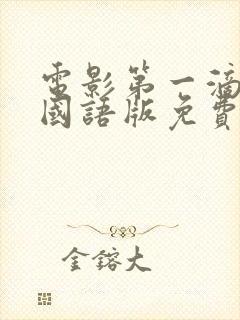 電影第一滴
國語版免費
金鎔大